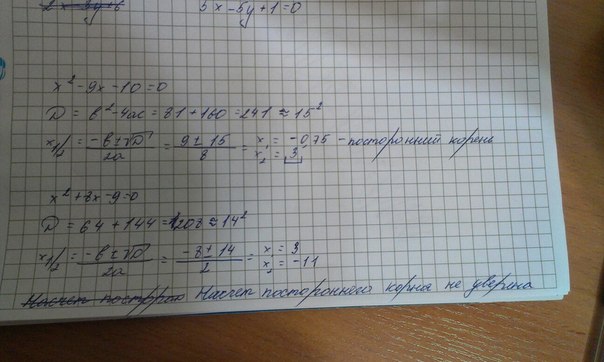 5x - 5y + 1 = 0
x² - 9x - 10 = 0
D = b² - 4ac = 81 + 160 = 241 ≈ 15²
x₁/₂ = (-b ± √D)/2a = (9 ± 15)/8 = x₁ = -0,75 - посторонний корень
x₂ = 3
x² + 8x - 9 = 0
D = 64 + 144 = 208 ≈ 14²
x₁/₂ = (-b ± √D)/2a = (-8 ± 14)/2 = x₁ = 3
x₂ = -11
Насчет постороннего корня не уверена